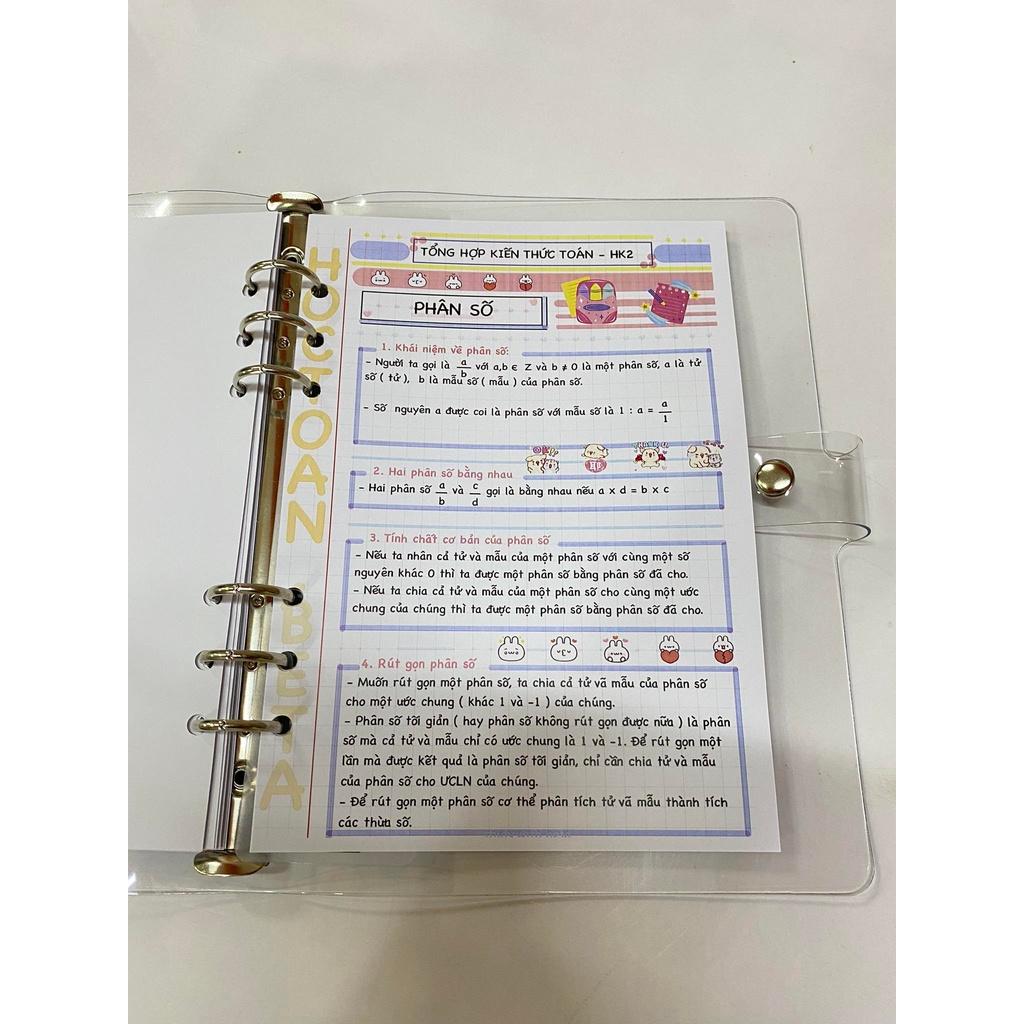 TỔNG HỢP KIẾN THỨC TOÁN - HK2
PHÂN SỐ
1. Khái niệm về phân số:
- Người ta gọi là a/b với a,b ∈ Z và b ≠ 0 là một phân số, a là tử
số ( tử ), b là mẫu số ( mẫu ) của phân số.
- Số nguyên a được coi là phân số với mẫu số là 1 : a = a/1
2. Hai phân số bằng nhau
- Hai phân số a/b và c/d gọi là bằng nhau nếu a x d = b x c
3. Tính chất cơ bản của phân số
- Nếu ta nhân cả tử và mẫu của một phân số với cùng một số
nguyên khác 0 thì ta được một phân số bằng phân số đã cho.
- Nếu ta chia cả tử và mẫu của một phân số cho cùng một ước
chung của chúng thì ta được một phân số bằng phân số đã cho.
4. Rút gọn phân số
- Muốn rút gọn một phân số, ta chia cả tử vã mẫu của phân số
cho một ước chung ( khác 1 và -1 ) của chúng.
- Phân số tối giản ( hay phân số không rút gọn được nữa ) là phân
số mà cả tử và mẫu chỉ có ước chung là 1 và -1. Để rút gọn một
lần mà được kết quả là phân số tối giản, chỉ cần chia tử và mẫu
của phân số cho ƯCLN của chúng.
- Để rút gọn một phân số cơ thể phân tích tử vã mẫu thành tích
các thừa số.
HOCTOAN BETA